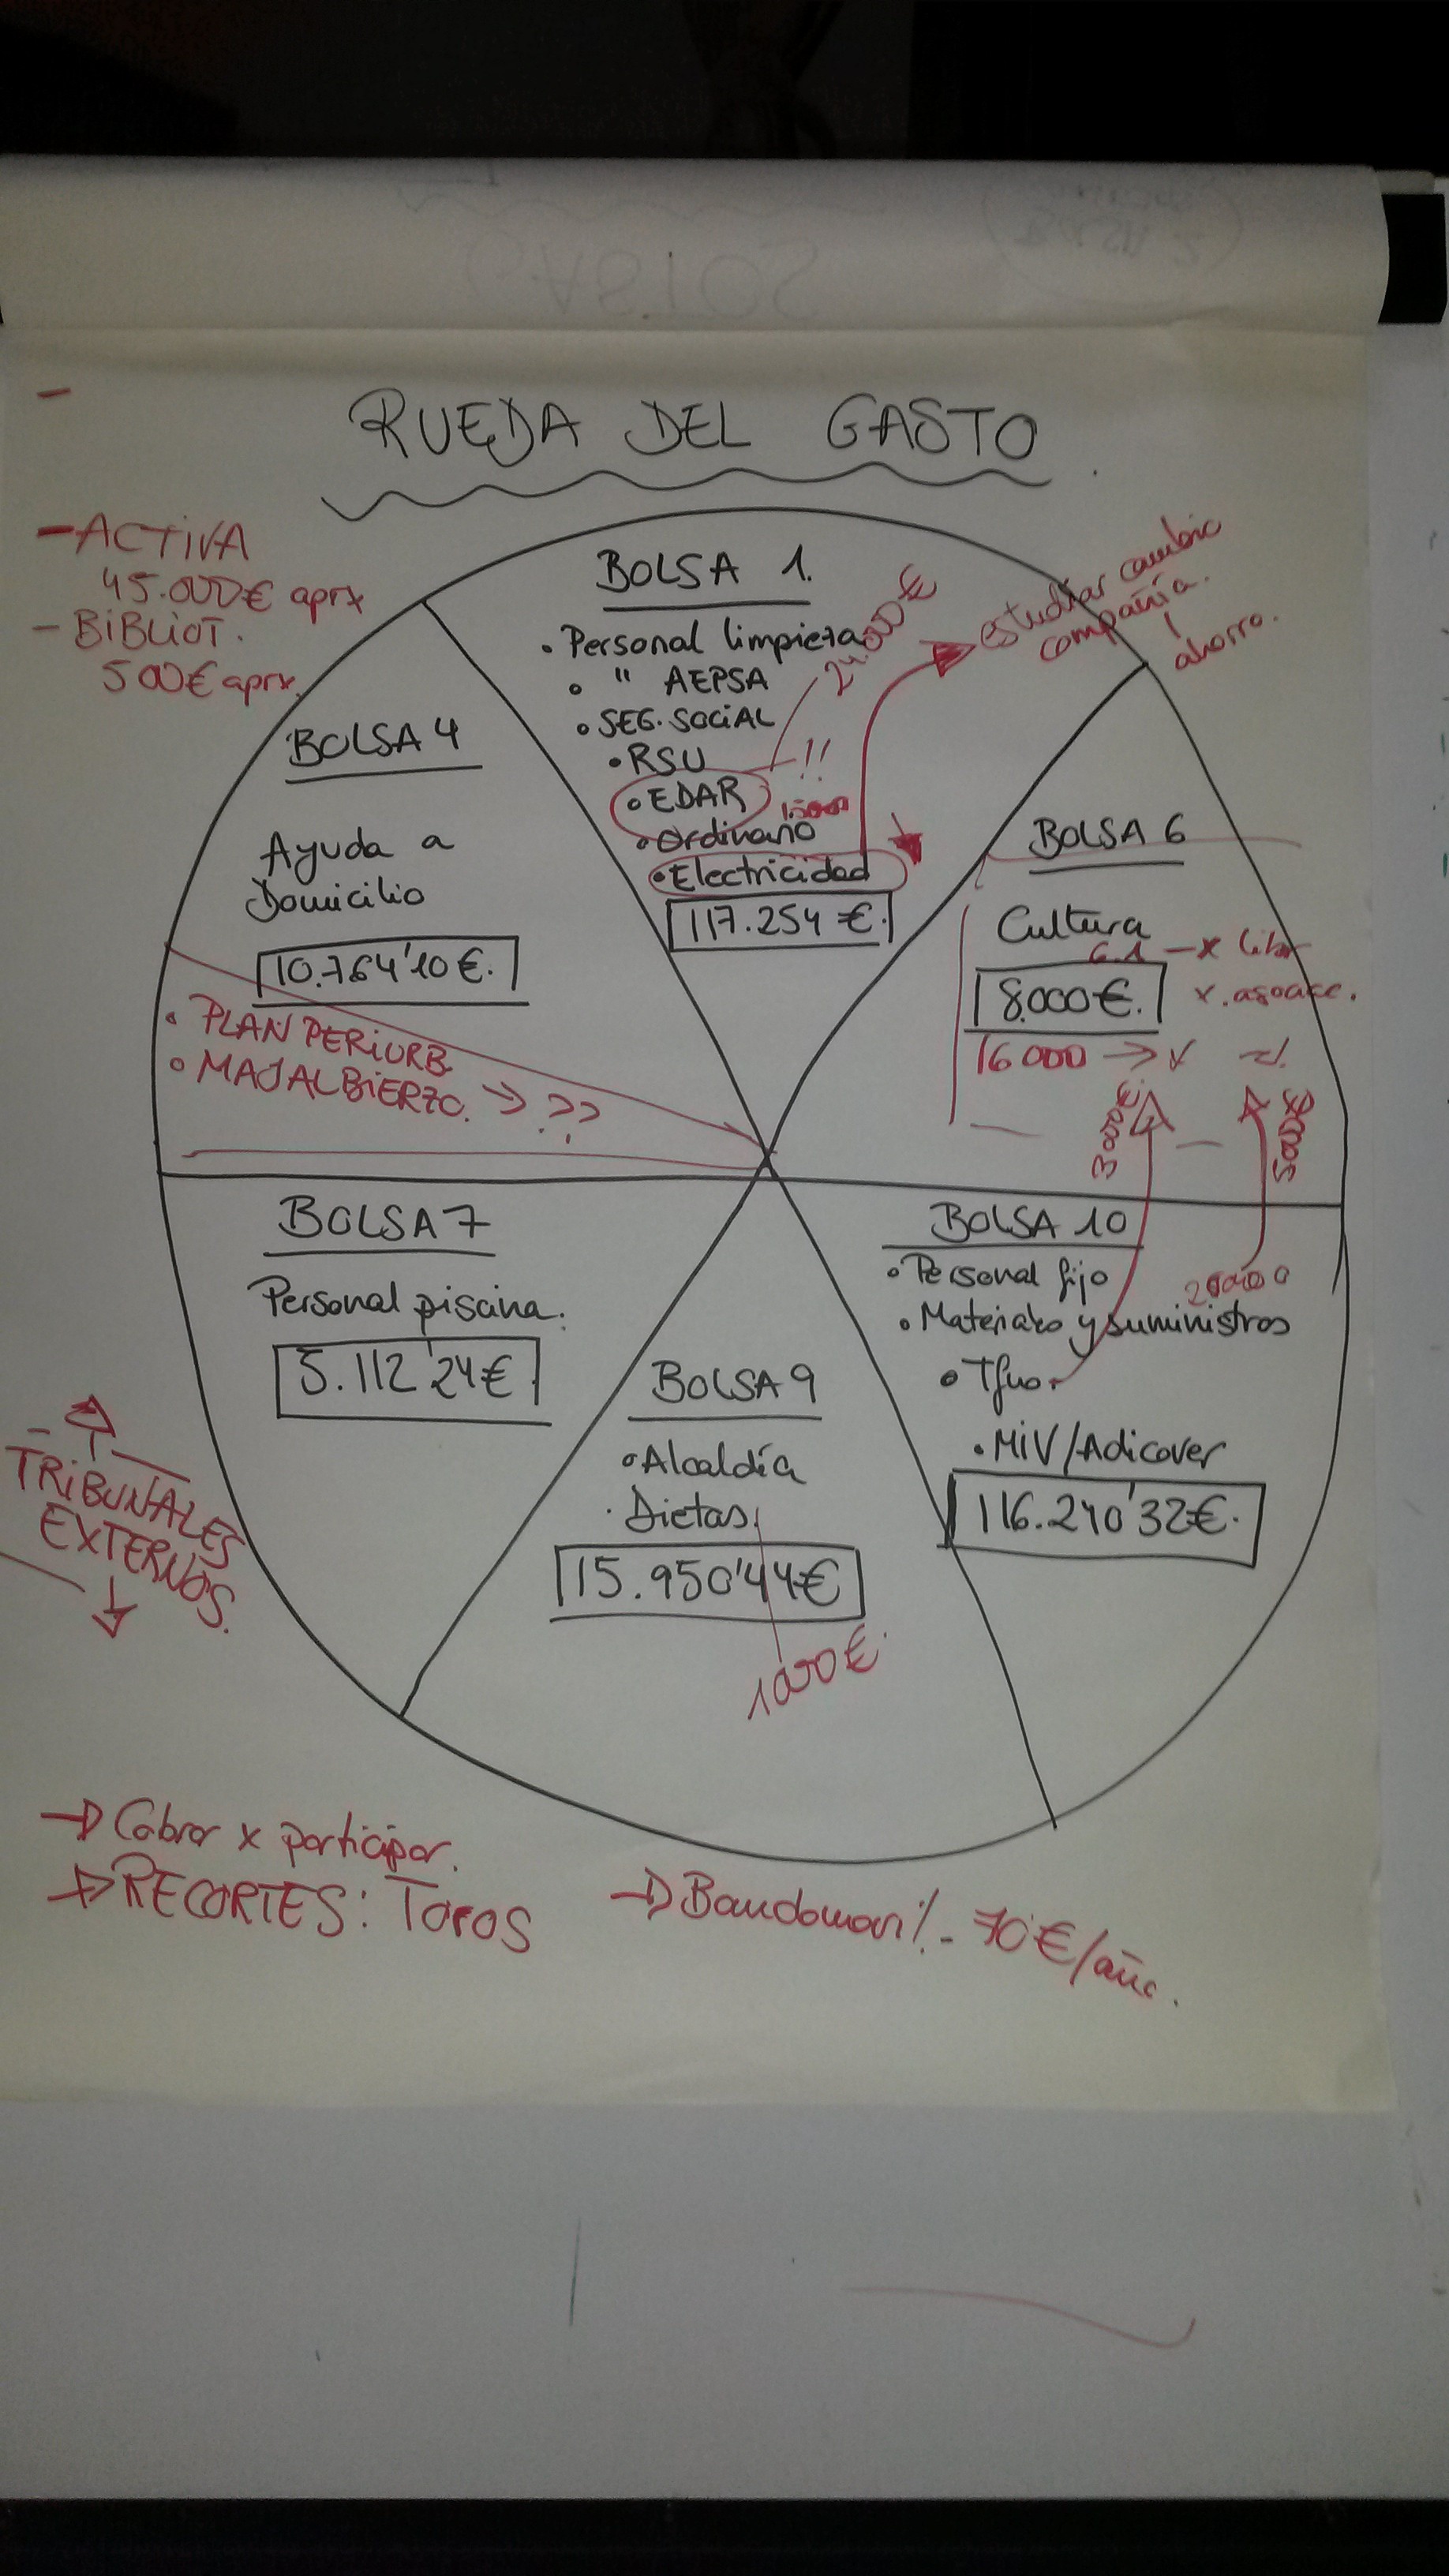 RUEDA DEL GASTO
- ACTIVA
45.000€ aprx
- BIBLIOT.
500€ aprx.
BOLSA 1.
• Personal limpieza
• " AEPSA
• SEG. SOCIAL
• RSU
• EDAR
• Ordinario
• Electricidad
117.254 €.
24.000 €
!!
estudiar cambio
compañía.
ahorro.
BOLSA 4
Ayuda a
Domicilio
10.764'10 €.
• PLAN PERIURB
• MAJALBIERZO. → ??
BOLSA 6
Cultura
6.1
8.000 €.
x. asoace.
16000 →
3000€
5000€
BOLSA 7
Personal piscina.
5.112'24 €
BOLSA 9
• Alcaldía
• Dietas.
15.950'44€
1000€.
BOLSA 10
• Personal fijo
• Materiales y suministros
• Tfno.
• MIV/Adicover
116.240'32€.
TRIBUNALES
EXTERNOS.
→ Cobrar x participar.
→ RECORTES: TOROS
→ Bandomovi - 70 €/año.